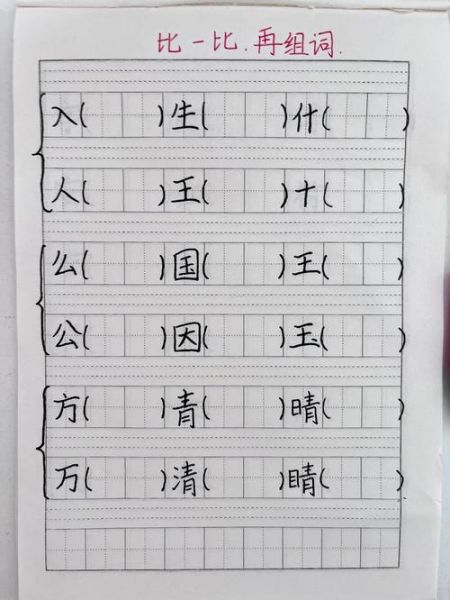 比一比.再组词.
入( )生( )什( )
人( )王( )十( )
么( )国( )王( )
公( )因( )玉( )
方( )青( )晴( )
万( )清( )睛( )